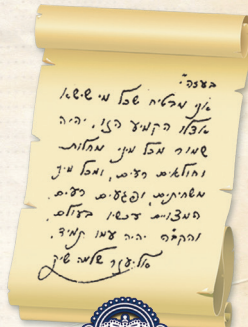 בעזהי"
אני מבטיח שכל מי שישא
אצלו הקמיע הזו, יהיה
שמור מכל מיני מחלות
וחולאים רעים, ומכל מיני
משחיתים, ופגעים רעים
המצויים עכשיו בעולם.
והקב"ה יהיה עמו תמיד.
אליעזר שלמה שיק